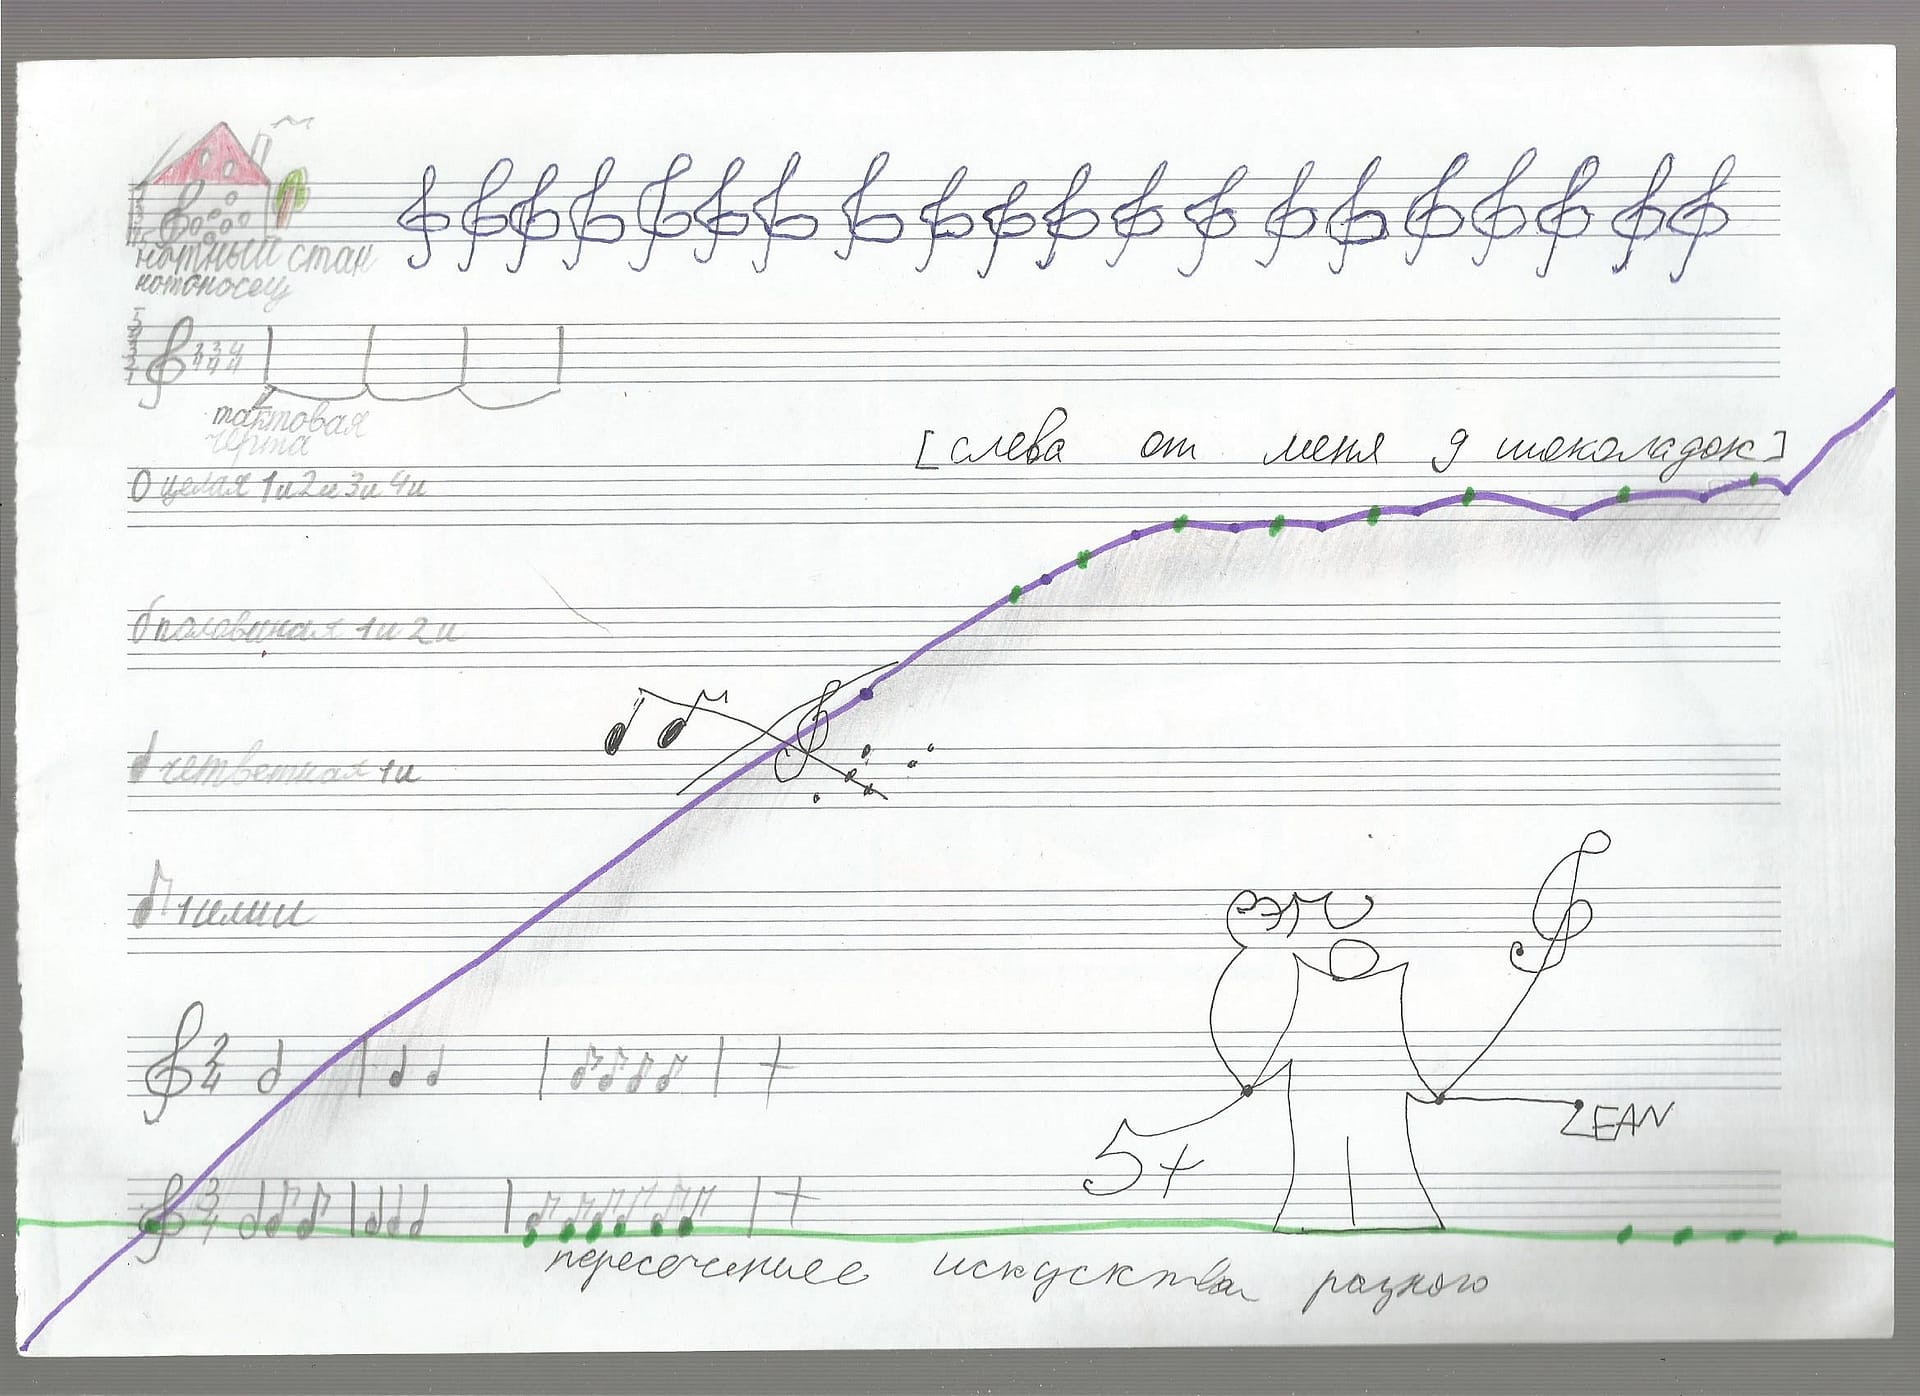 нотный стан
нотоносец
5
4
3
2
1
2 3 4
4 4 4
тактовая
черта
[слева от меня 9 шоколадок]
целая 1и2и3и4и
половиная 1и2и
четвертная 1и
1илии
2
4
5+
ZEAN
3
4
пересечение искусктва разного